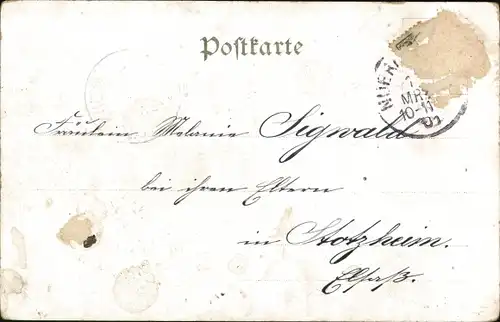 Postkarte
7
MRZ
10-11
01
Fräulein Melanie Sigwald
bei ihren Eltern
in Stotzheim.
Elsaß.